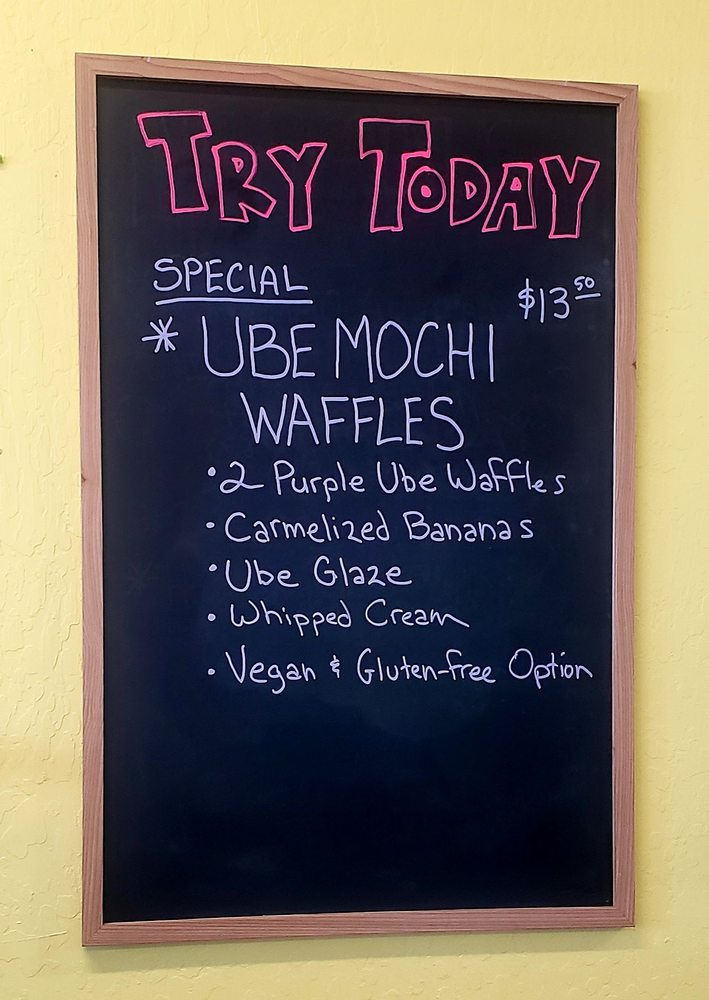 TRY TODAY
SPECIAL
$13 50
* UBE MOCHI
WAFFLES
• 2 Purple Ube Waffles
• Carmelized Bananas
• Ube Glaze
• Whipped Cream
• Vegan & Gluten-free Option